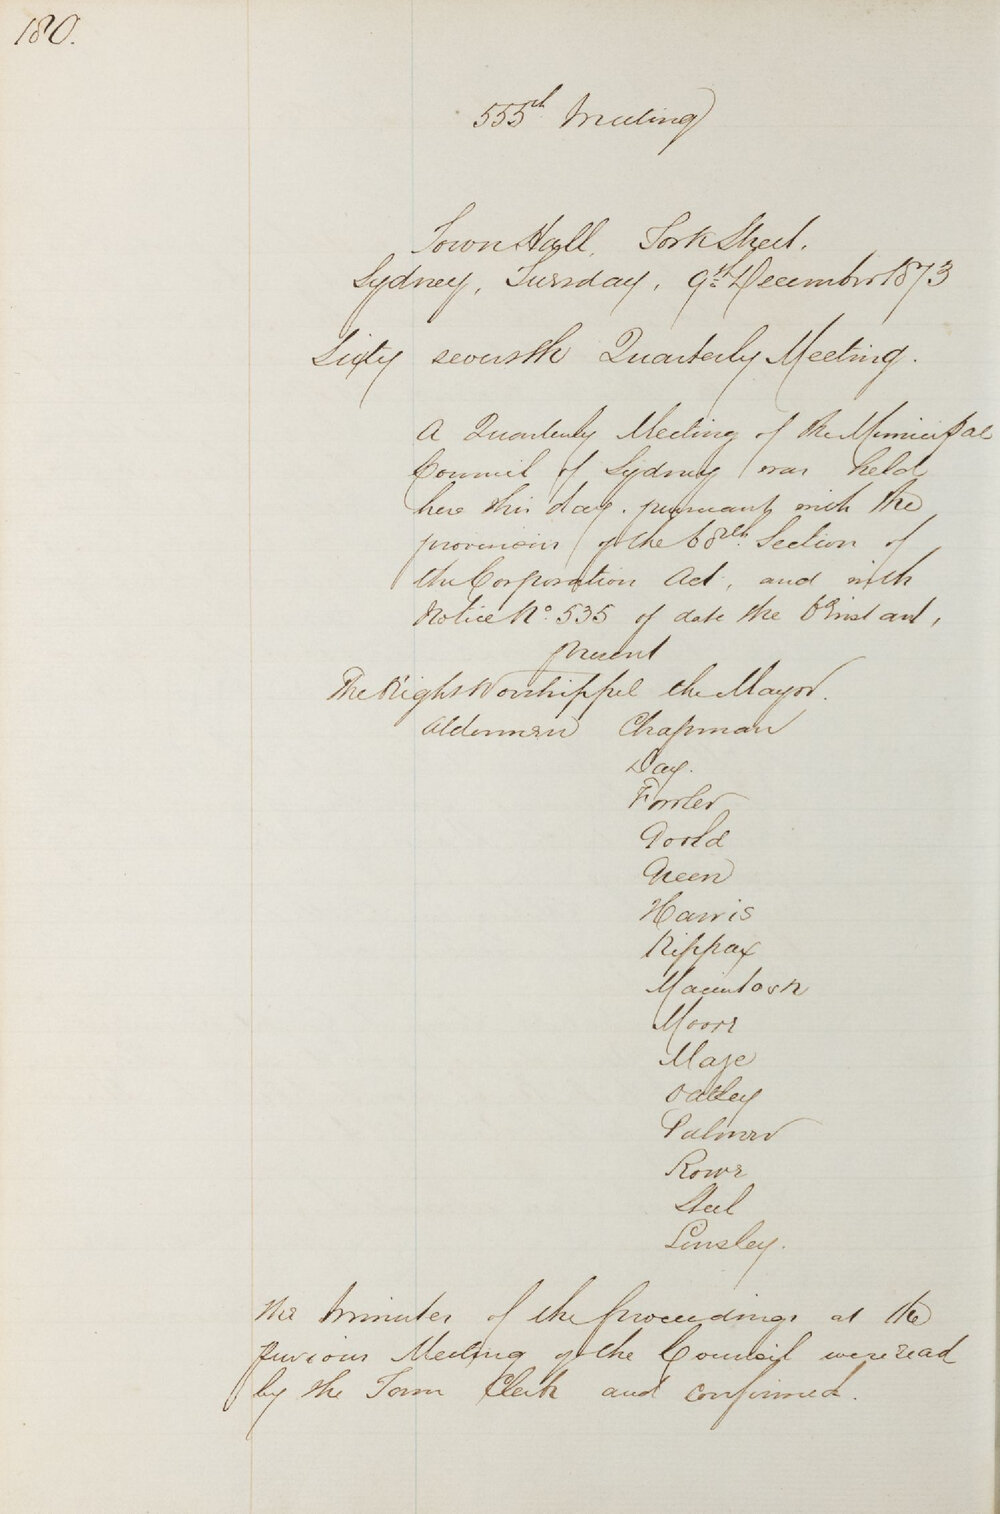 180.
555th Meeting
Town Hall, York Street.
Sydney, Tuesday, 9th December 1873
Sixty seventh Quarterly Meeting.
A Quarterly Meeting of the Municipal
Council of Sydney was held
here this day, pursuant with the
provisions of the 68th Section of
the Corporation Act, and with
Notice No. 535 of date the instant,
present
The Right Worshipful the Mayor.
Aldermen Chapman
Day.
Fowler
Goold
Green
Harris
Kippax
Macintosh
Moore
Maze
Oatley
Palmer
Rowe
Steel
Linsley.
The Minutes of the proceedings at the
previous Meeting of the Council were read
by the Town Clerk and confirmed.